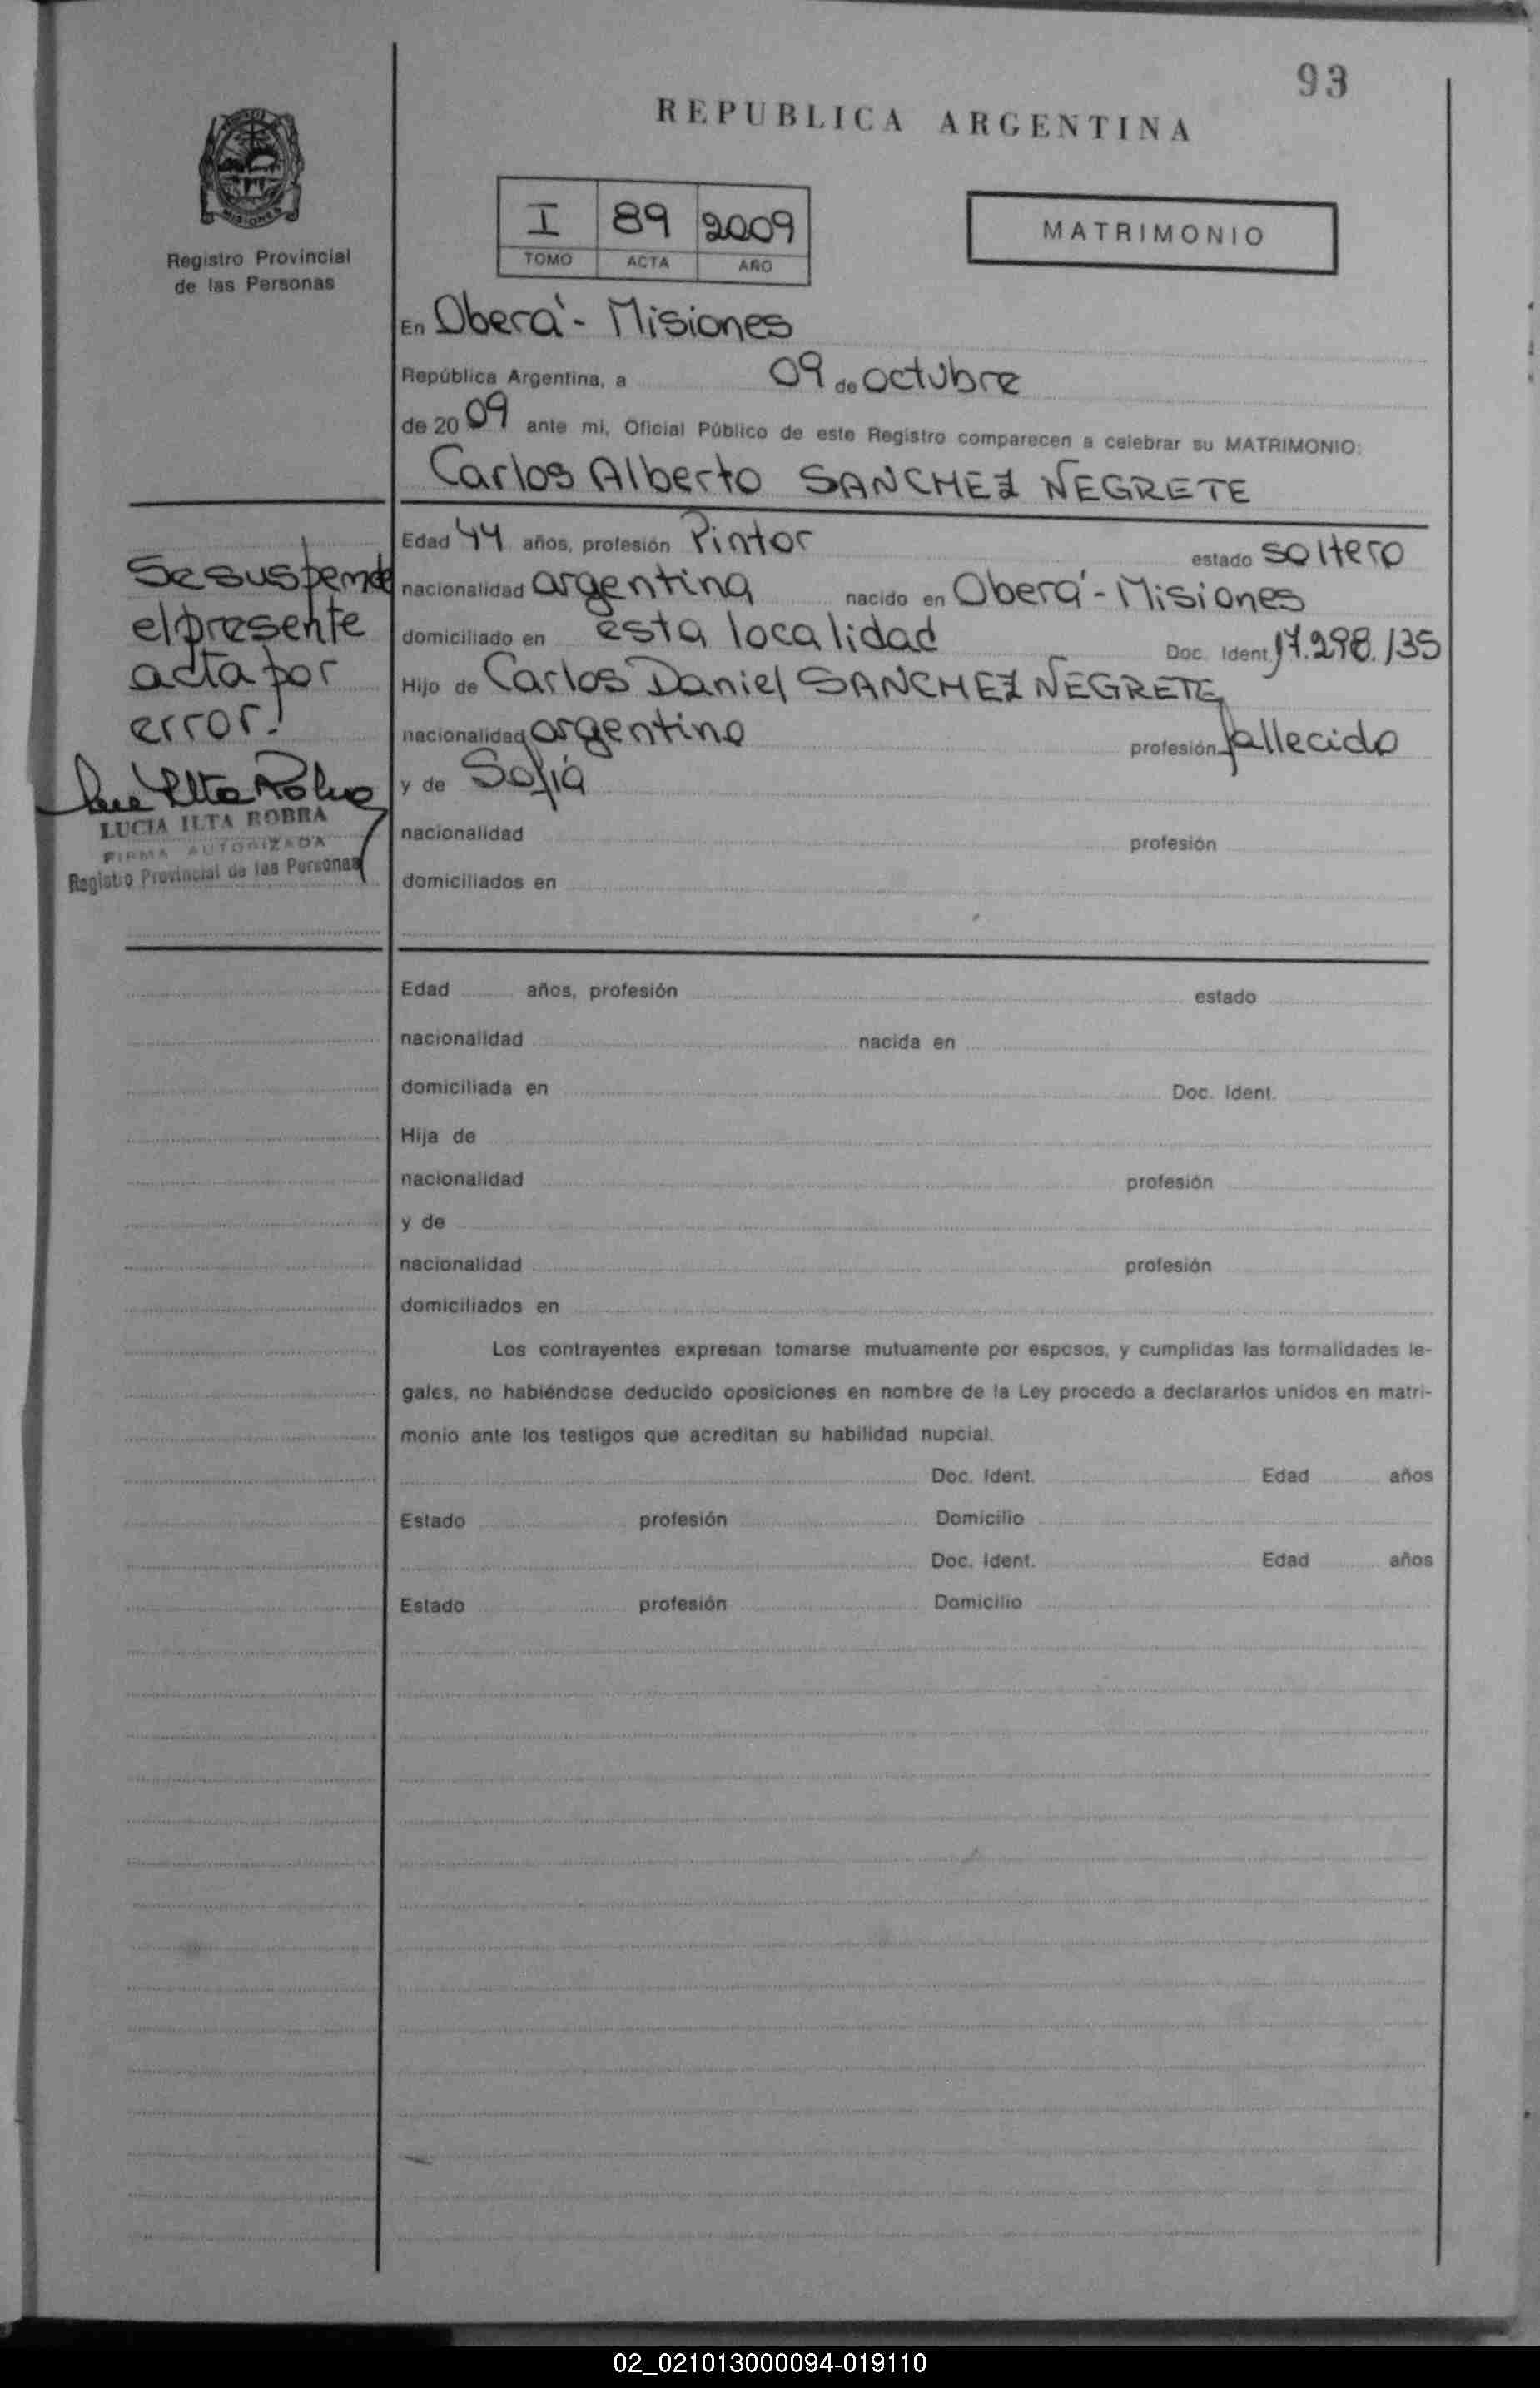 93
REPUBLICA ARGENTINA
MISIONES
Registro Provincial
de las Personas
I 89 2009
TOMO ACTA AÑO
MATRIMONIO
En Oberá - Misiones
República Argentina, a 09 de octubre
de 2009 ante mi, Oficial Público de este Registro comparecen a celebrar su MATRIMONIO:
Carlos Alberto SANCHEZ NEGRETE
Edad 44 años, profesión Pintor estado soltero
nacionalidad argentina nacido en Oberá - Misiones
domiciliado en esta localidad Doc. Ident. 17.298.135
Hijo de Carlos Daniel SANCHEZ NEGRETE,
nacionalidad argentino profesión fallecido
y de Sofía
nacionalidad profesión
domiciliados en
Se suspende
el presente
acta por
error.
LUCIA ILTA ROBRA
FIRMA AUTORIZADA
Registro Provincial de las Personas
Edad años, profesión estado
nacionalidad nacida en
domiciliada en Doc. Ident.
Hija de
nacionalidad profesión
y de
nacionalidad profesión
domiciliados en
Los contrayentes expresan tomarse mutuamente por esposos, y cumplidas las formalidades le-
gales, no habiéndose deducido oposiciones en nombre de la Ley procedo a declararlos unidos en matri-
monio ante los testigos que acreditan su habilidad nupcial.
Doc. Ident. Edad años
Estado profesión Domicilio
Doc. Ident. Edad años
Estado profesión Domicilio
02_021013000094-019110